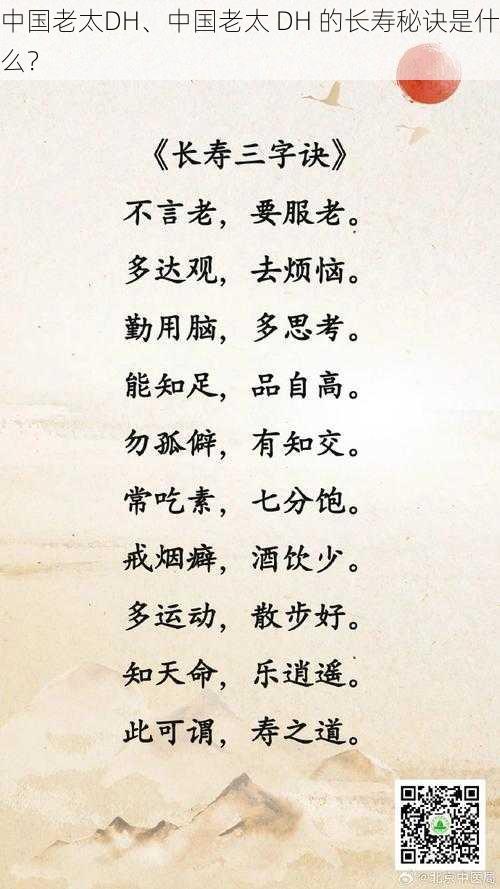 中国老太DH、中国老太 DH 的长寿秘诀是什
么?
《长寿三字诀》
不言老，要服老。
多达观，去烦恼。
勤用脑，多思考。
能知足，品自高。
勿孤僻，有知交。
常吃素，七分饱。
戒烟癖，酒饮少。
多运动，散步好。
知天命，乐逍遥。
此可谓，寿之道。
@北京中医局